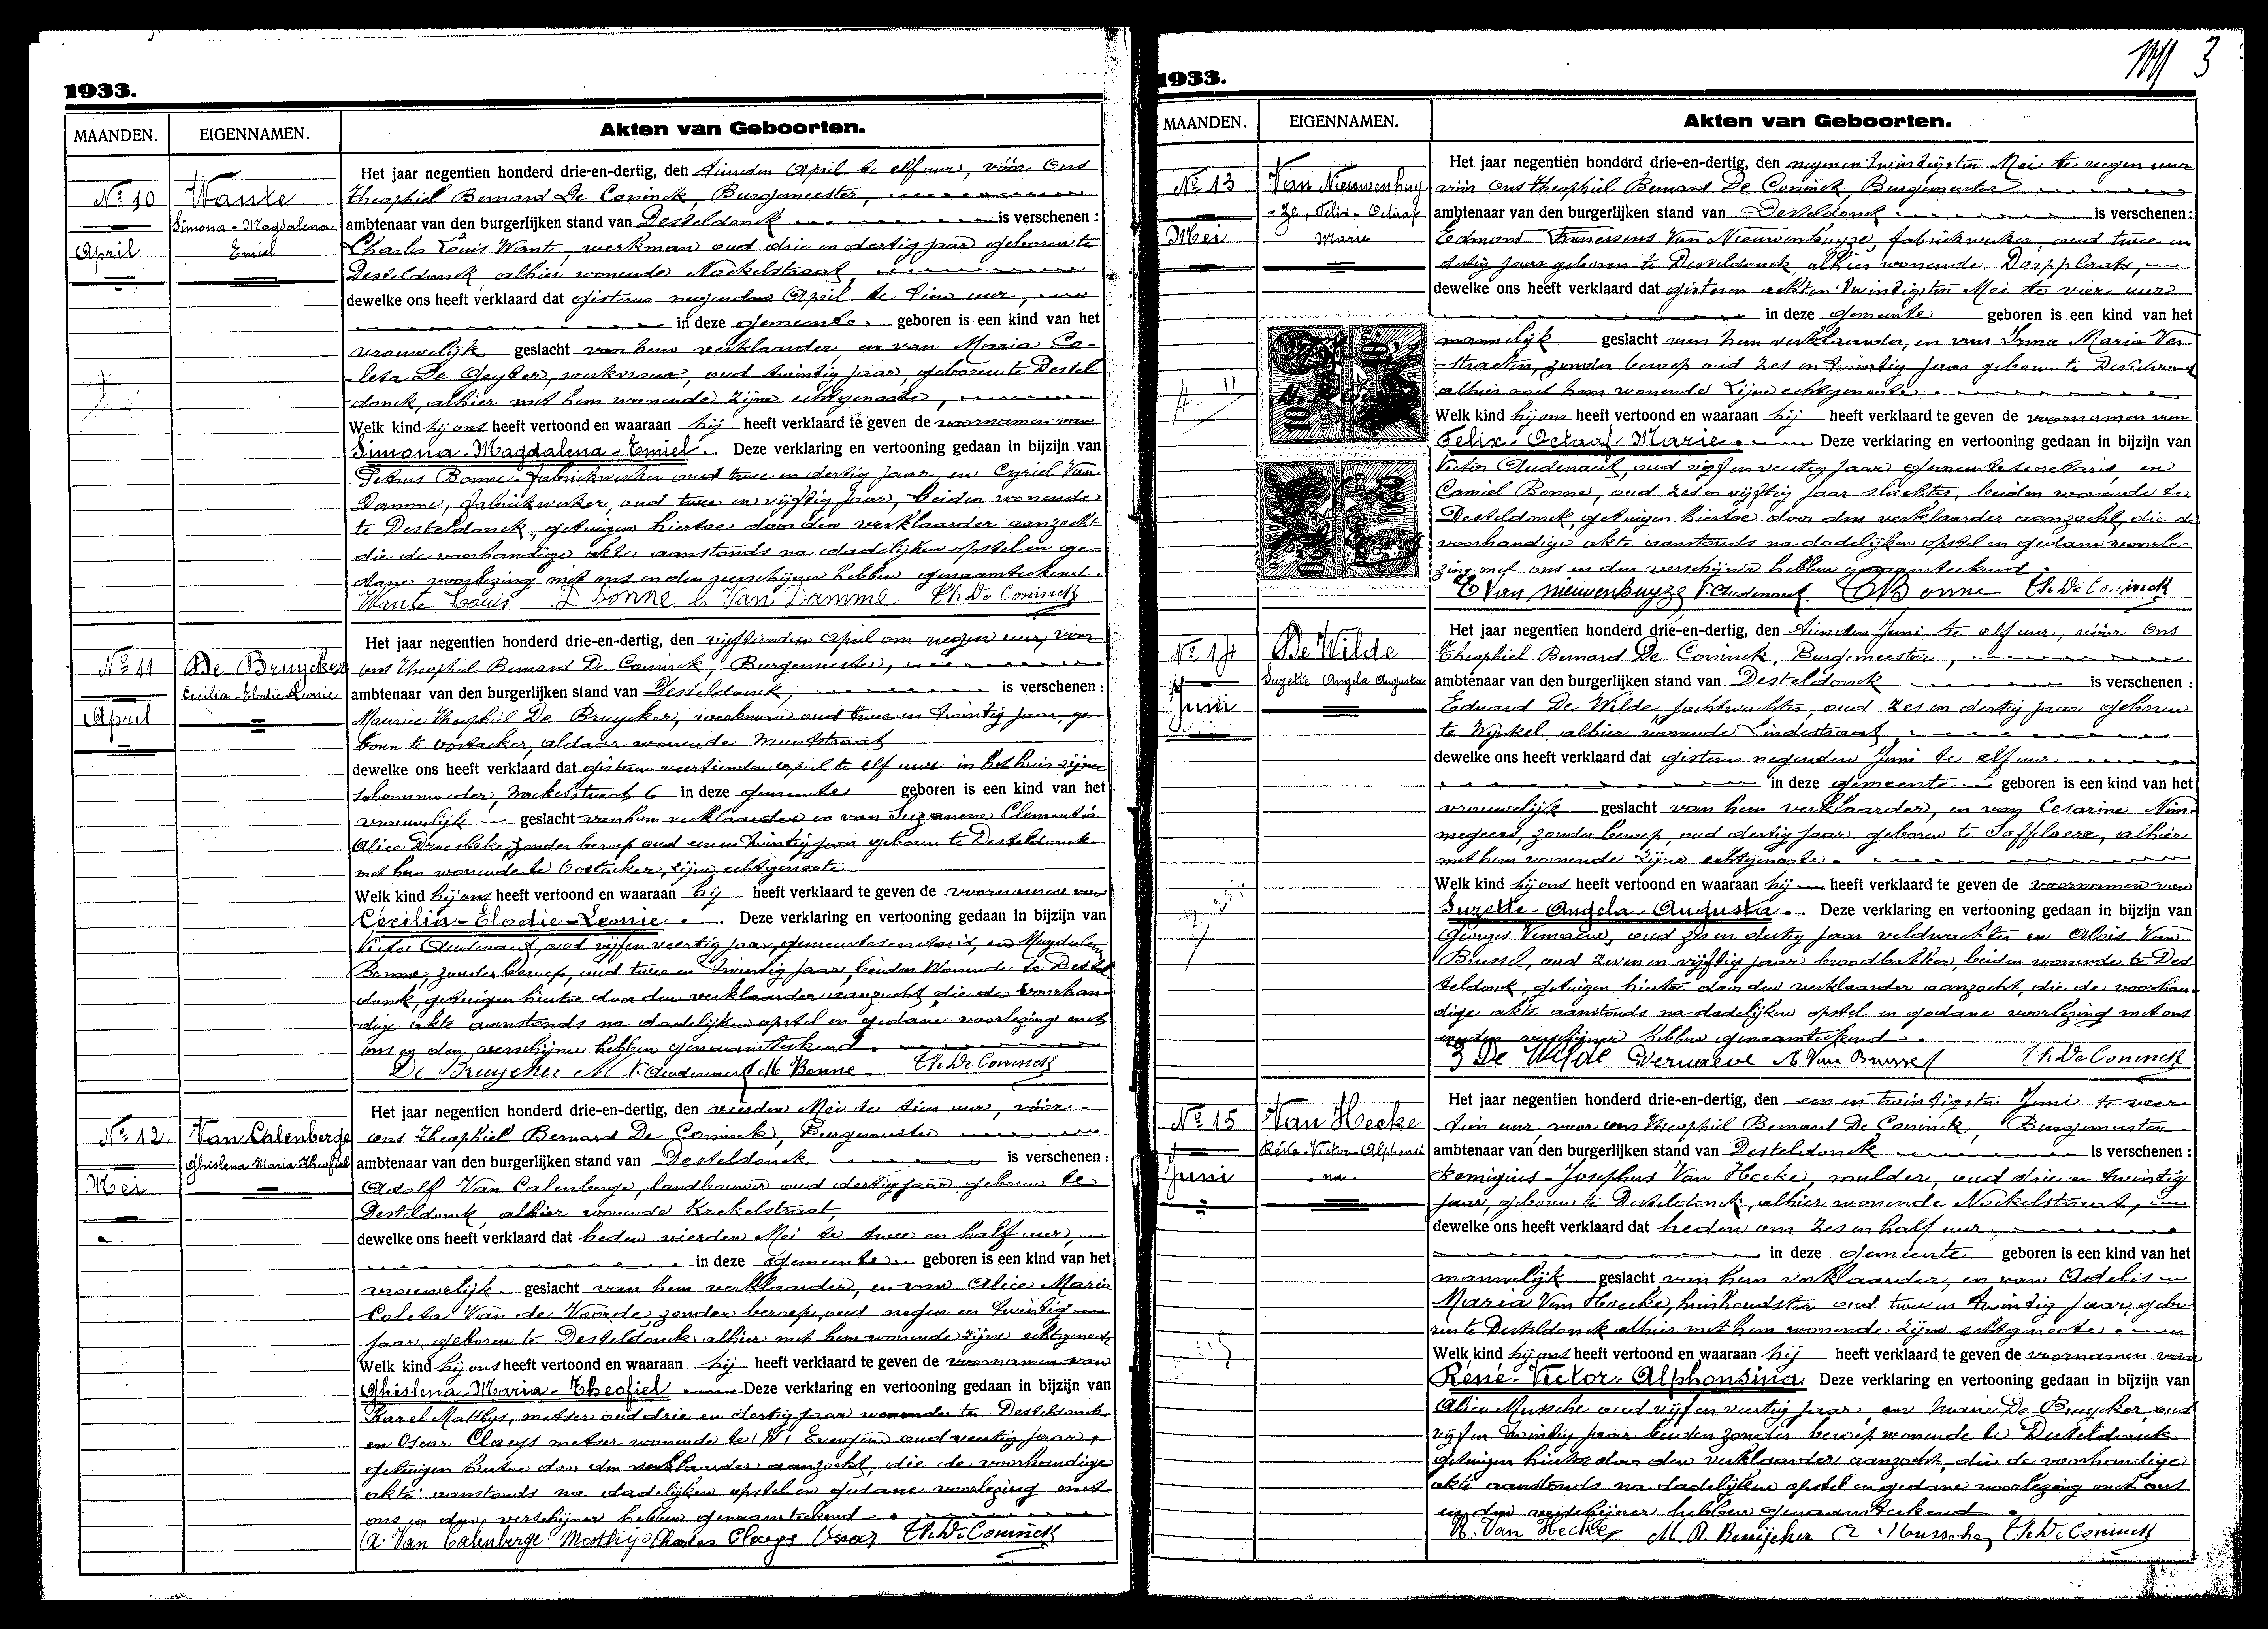 1933.
MAANDEN. EIGENNAMEN. Akten van Geboorten.
Nº 10
April
Wante
Simona-Magdalena
Emiel
Het jaar negentien honderd drie-en-dertig, den tienden April te elf uur, vóór Ons
Theophiel Bernard De Coninck, Burgemeester,
ambtenaar van den burgerlijken stand van Desteldonck is verschenen :
Charles Louis Wante, werkman oud drie en dertig jaar geboren te
Desteldonck, alhier wonende Nockelstraat,
dewelke ons heeft verklaard dat gisteren negenden April te tien uur,
in deze gemeente geboren is een kind van het
vrouwelijk geslacht van hem verklaarder, en van Maria Co-
leta De Geyter, werkvrouw, oud twintig jaar, geboren te Destel
donck, alhier met hem wonende zijne echtgenoote,
Welk kind hij ons heeft vertoond en waaraan hij heeft verklaard te geven de voornamen van
Simona-Magdalena-Emiel. Deze verklaring en vertooning gedaan in bijzijn van
Petrus Bonne, fabriekwerker oud twee en dertig jaar, en Cyriel Van
Damme, fabriekwerker, oud twee en vijftig jaar, beiden wonende
te Desteldonck, getuigen hiertoe door den verklaarder aanzocht
die de voorhandige akte aanstonds na dadelijken opstel en ge-
dane voorlezing met ons en den verschijner hebben genaamteekend.
Wante Louis P Bonne C Van Damme Th. De Coninck
Nº 11
April
De Bruycker
Cecilia-Elodie-Leonie
Het jaar negentien honderd drie-en-dertig, den vijftienden April om negen uur, voor
ons Theophiel Bernard De Coninck, Burgemeester,
ambtenaar van den burgerlijken stand van Desteldonck, is verschenen :
Maurice Theophiel De Bruycker, werkman oud twee en twintig jaar, ge-
boren te Oostacker, aldaar wonende Muntstraat
dewelke ons heeft verklaard dat gisteren veertienden april te elf uur in het huis zijner
schoonmoeder, Nockelstraat 6 in deze gemeente geboren is een kind van het
vrouwelijk geslacht van hem verklaarder en van Suzanna Clementia
Alice zonder beroep oud een en twintig jaar geboren te Desteldonck
met hem wonende te Oostacker, zijne echtgenoote
Welk kind hij ons heeft vertoond en waaraan hij heeft verklaard te geven de voornamen van
Cecilia-Elodie-Leonie. Deze verklaring en vertooning gedaan in bijzijn van
Victor Audenaert, oud vijf en veertig jaar, gemeentesecretaris, en
Bonne, zonder beroep, oud twee en twintig jaar, beiden wonende te Destel
donck, getuigen hiertoe door den verklaarder aanzocht, die de voorhan-
dige akte aanstonds na dadelijken opstel en gedane voorlezing met
ons en den verschijner hebben genaamteekend.
De Bruycker M V. Audenaert M Bonne Th. De Coninck
Nº 12.
Mei
Van Calenberge
Ghislena Maria Theofiel
Het jaar negentien honderd drie-en-dertig, den vierden Mei te tien uur, vóór
ons Theophiel Bernard De Coninck, Burgemeester
ambtenaar van den burgerlijken stand van Desteldonck is verschenen :
Adolf Van Calenberge, landbouwer oud dertig jaar geboren te
Desteldonck, alhier wonende Krekelstraat,
dewelke ons heeft verklaard dat heden vierden Mei te twee en half uur,
in deze gemeente geboren is een kind van het
vrouwelijk geslacht van hem verklaarder, en van Alice Maria
Coleta Van de Voorde, zonder beroep, oud negen en twintig
jaar, geboren te Desteldonck alhier met hem wonende zijne echtgenoote
Welk kind hij ons heeft vertoond en waaraan hij heeft verklaard te geven de voornamen van
Ghislena-Maria-Theofiel Deze verklaring en vertooning gedaan in bijzijn van
Karel Matthys, metser oud drie en dertig jaar wonende te Desteldonck
en Oscar Claeys metser wonende te Evergem oud veertig jaar,
getuigen hiertoe door den verklaarder aanzocht, die de voorhandige
akte aanstonds na dadelijken opstel en gedane voorlezing met
ons en den verschijner hebben genaamteekend.
A. Van Calenberge Matthys Charles Claeys Oscar Th. De Coninck
1933.
3
MAANDEN. EIGENNAMEN. Akten van Geboorten.
Nº 13
Mei
Van Nieuwenhuy
-ze, Felix-Octaaf
Marie
Het jaar negentien honderd drie-en-dertig, den negen en twintigsten Mei te negen uur
vóór Ons Theophiel Bernard De Coninck, Burgemeester
ambtenaar van den burgerlijken stand van Desteldonck is verschenen :
Edmond Franciscus Van Nieuwenhuyze, fabriekwerker, oud twee en
dertig jaar geboren te Desteldonck, alhier wonende Dorpplaats,
dewelke ons heeft verklaard dat gisteren acht en twintigsten Mei te vier uur
in deze gemeente geboren is een kind van het
mannelijk geslacht van hem verklaarder, en van Irma Maria Ver
-straeten, zonder beroep oud zes en twintig jaar geboren te Desteldonck
alhier met hem wonende zijne echtgenoote.
Welk kind hij ons heeft vertoond en waaraan hij heeft verklaard te geven de voornamen van
Felix-Octaaf-Marie. Deze verklaring en vertooning gedaan in bijzijn van
Victor Audenaert, oud vijf en veertig jaar gemeentesecretaris, en
Camiel Bonne, oud zes en vijftig jaar slachter, beiden wonende te
Desteldonck, getuigen hiertoe door den verklaarder aanzocht, die de
voorhandige akte aanstonds na dadelijken opstel en gedane voorle-
zing met ons en den verschijner hebben genaamteekend.
E Van Nieuwenhuyze V. Audenaert C Bonne Th. De Coninck
Nº 14
Juni
De Wilde
Suzette Angela Augusta
Het jaar negentien honderd drie-en-dertig, den tienden Juni te elf uur, vóór Ons
Theophiel Bernard De Coninck, Burgemeester,
ambtenaar van den burgerlijken stand van Desteldonck is verschenen :
Eduard De Wilde, jachtwachter, oud zes en dertig jaar geboren
te Wynkel, alhier wonende Lindestraat,
dewelke ons heeft verklaard dat gisteren negenden Juni te elf uur
in deze gemeente geboren is een kind van het
vrouwelijk geslacht van hem verklaarder, en van Cesarine Nim-
megeers, zonder beroep, oud dertig jaar geboren te Saffelaere, alhier
met hem wonende zijne echtgenoote.
Welk kind hij ons heeft vertoond en waaraan hij heeft verklaard te geven de voornamen van
Suzette-Angela-Augusta. Deze verklaring en vertooning gedaan in bijzijn van
Georges Vernaeve, oud zes en dertig jaar veldwachter en Alois Van
Brussel, oud zeven en vijftig jaar broodbakker, beiden wonende te Des
teldonck, getuigen hiertoe door den verklaarder aanzocht, die de voorhan-
dige akte aanstonds na dadelijken opstel en gedane voorlezing met ons
en den verschijner hebben genaamteekend.
De Wilde G Vernaeve A Van Brussel Th. De Coninck
Nº 15
Juni
Van Hecke
Réné-Victor-Alphonsi
-na-
Het jaar negentien honderd drie-en-dertig, den een en twintigsten Juni te veer
tien uur, voor ons Theophiel Bernard De Coninck, Burgemeester
ambtenaar van den burgerlijken stand van Desteldonck is verschenen :
Remigius-Josephus Van Hecke, mulder, oud drie en twintig
jaar, geboren te Desteldonck, alhier wonende Nockelstraat,
dewelke ons heeft verklaard dat heden om zes en half uur,
in deze gemeente geboren is een kind van het
mannelijk geslacht van hem verklaarder, en van Adelis
Maria Van Hoecke, huishoudster oud twee en twintig jaar, gebo
ren te Desteldonck alhier met hem wonende zijne echtgenoote.
Welk kind hij ons heeft vertoond en waaraan hij heeft verklaard te geven de voornamen van
Réné-Victor-Alphonsina Deze verklaring en vertooning gedaan in bijzijn van
Alice Mussche oud vijf en veertig jaar, en Maria De Bruycker, oud
vijf en twintig jaar beiden zonder beroep wonende te Desteldonck
getuigen hiertoe door den verklaarder aanzocht, die de voorhandige
akte aanstonds na dadelijken opstel en gedane voorlezing met ons
en den verschijner hebben genaamteekend.
R. Van Hecke M. D. Bruijcker A Mussche Th. De Coninck